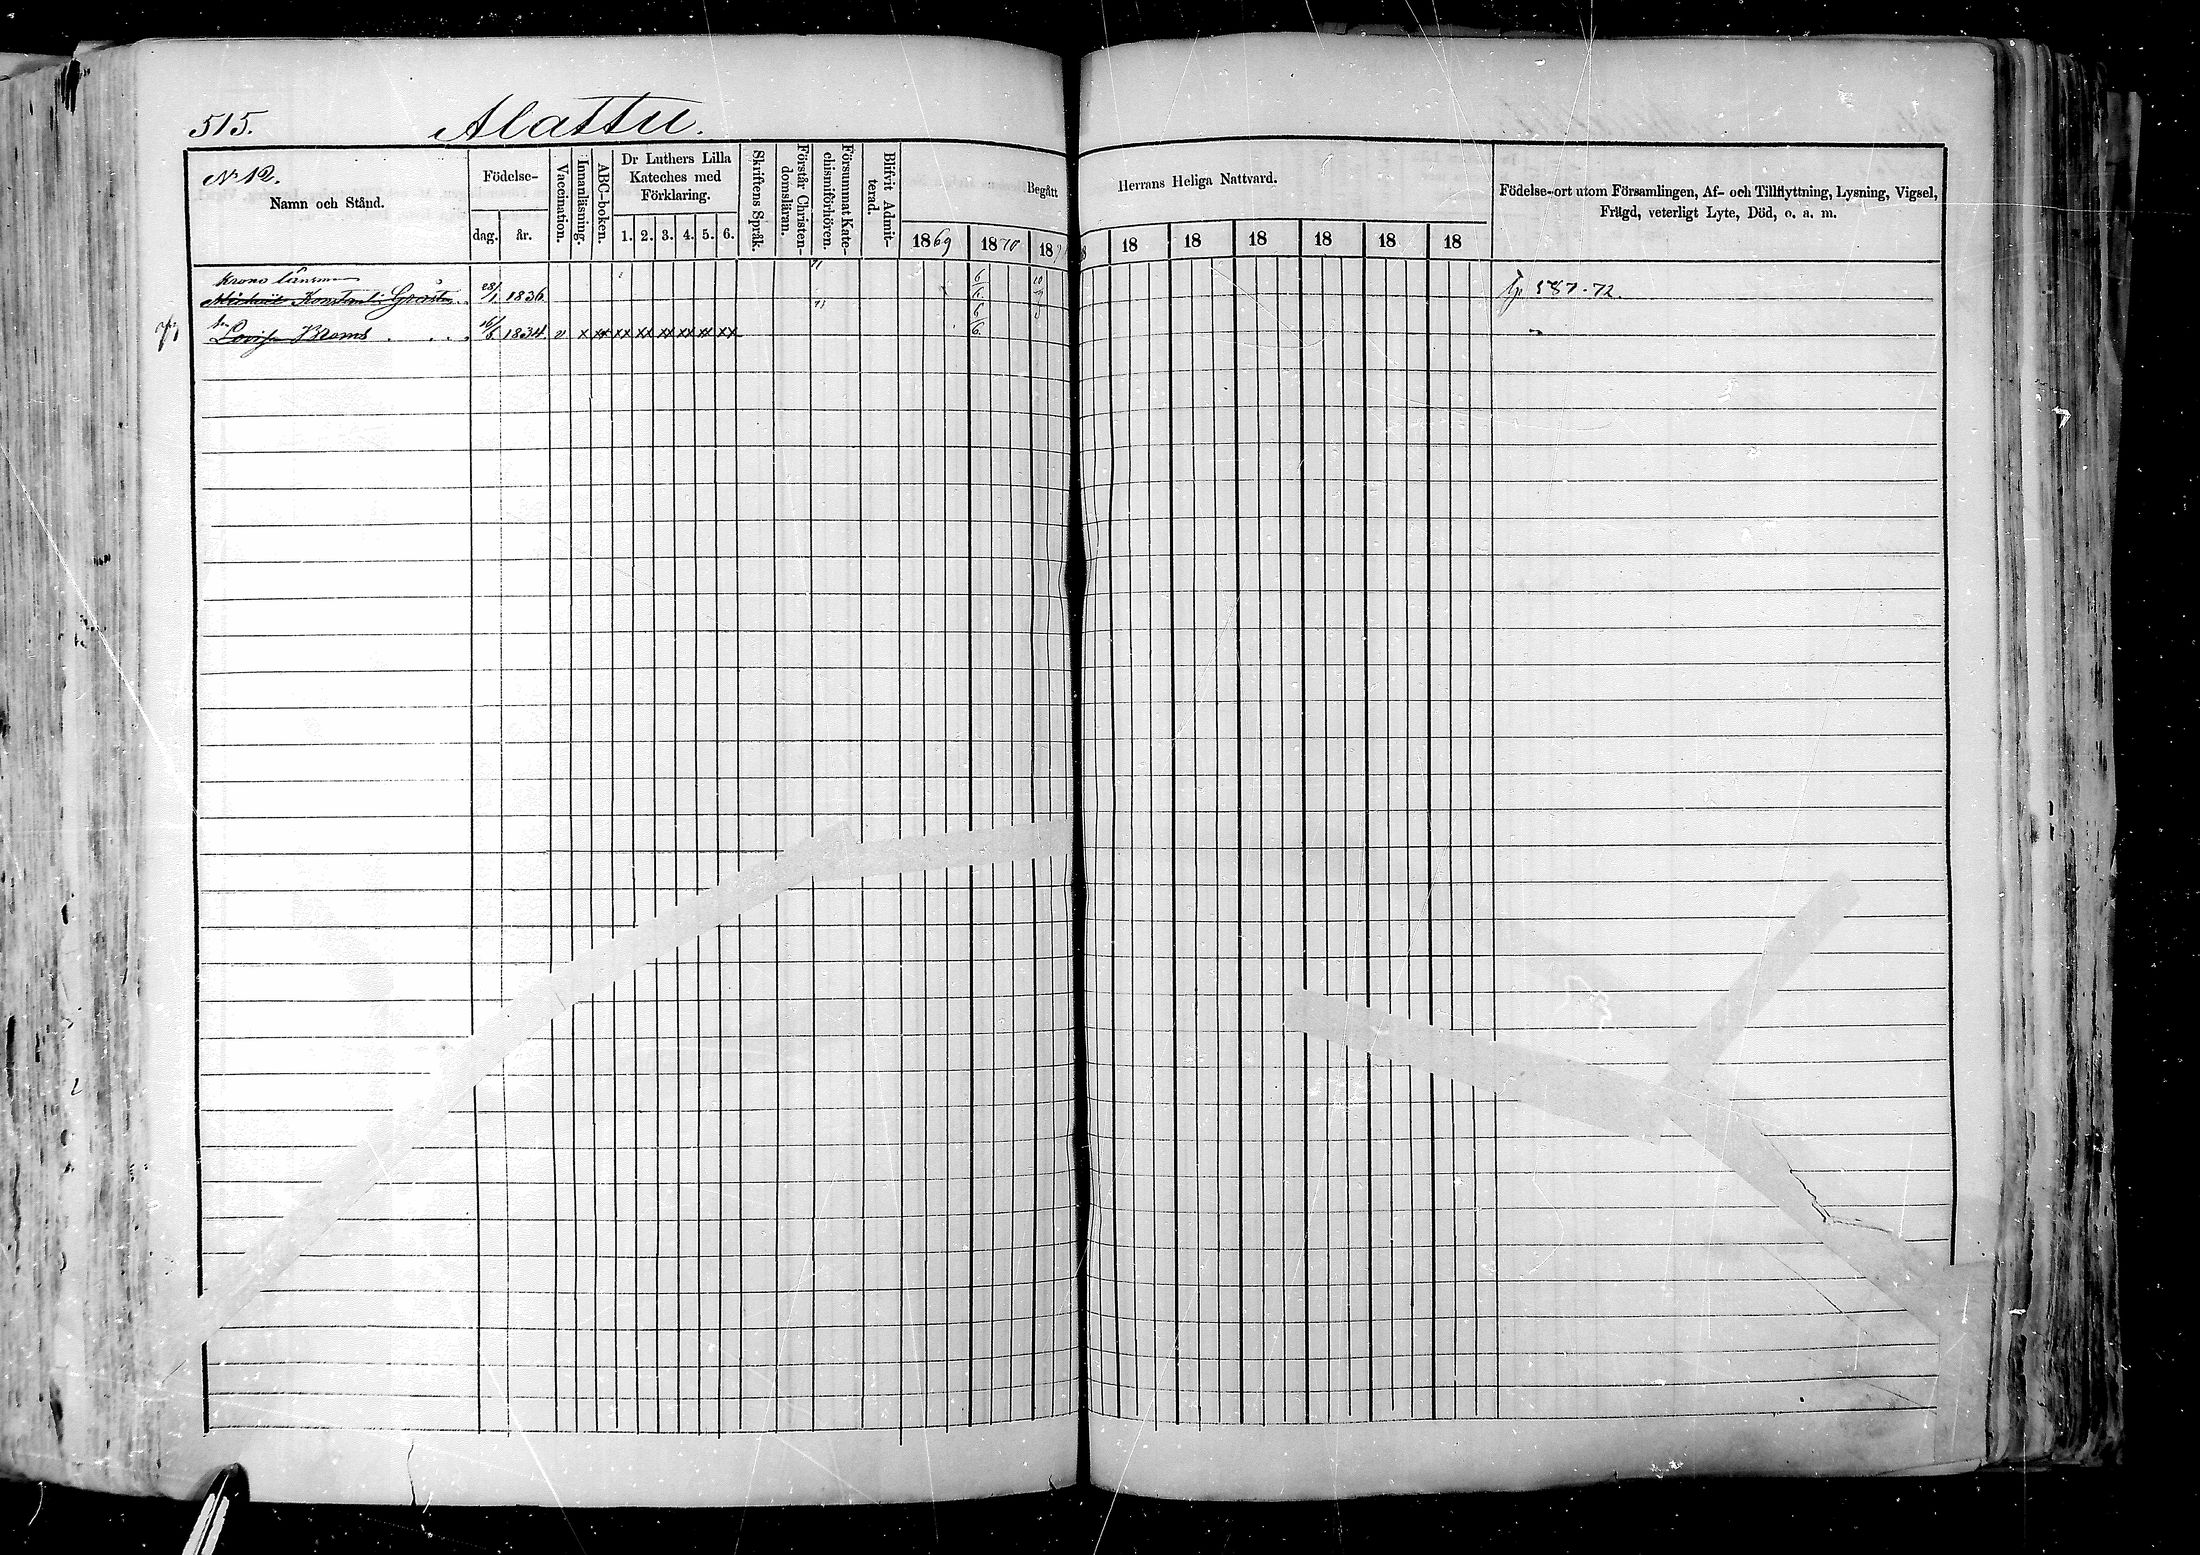 515. Alattu.
No 12.
Namn och Stånd.
Födelse-
dag. år.
Vaccination.
Innanläsning.
ABC-boken.
Dr Luthers Lilla
Kateches med
Förklaring.
1. 2. 3. 4. 5. 6.
Skriftens Språk.
Förstår Christen-
domsläran.
Försummat Kate-
chismiförhören.
Blifvit Admit-
terad.
Begått Herrans Heliga Nattvard.
1869 1870 187 18 18 18 18 18 18
Födelse-ort utom Församlingen, Af- och Tillflyttning, Lysning, Vigsel,
Frägd, veterligt Lyte, Död, o. a. m.
Krono länsm
Konstantin 28/1 1836 587.72.
Lovisa 16/6 1834 v x xx xx xx xx xx xx xx